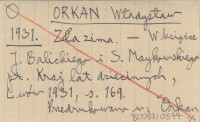 ORKAN Władysław
1931. Zła zima. — W książce
J. Balickiego i S. Maykowskiego
pt. Kraj lat dziecinnych,
Lwów 1931, s. 169.
Przedrukowano w: Orkan